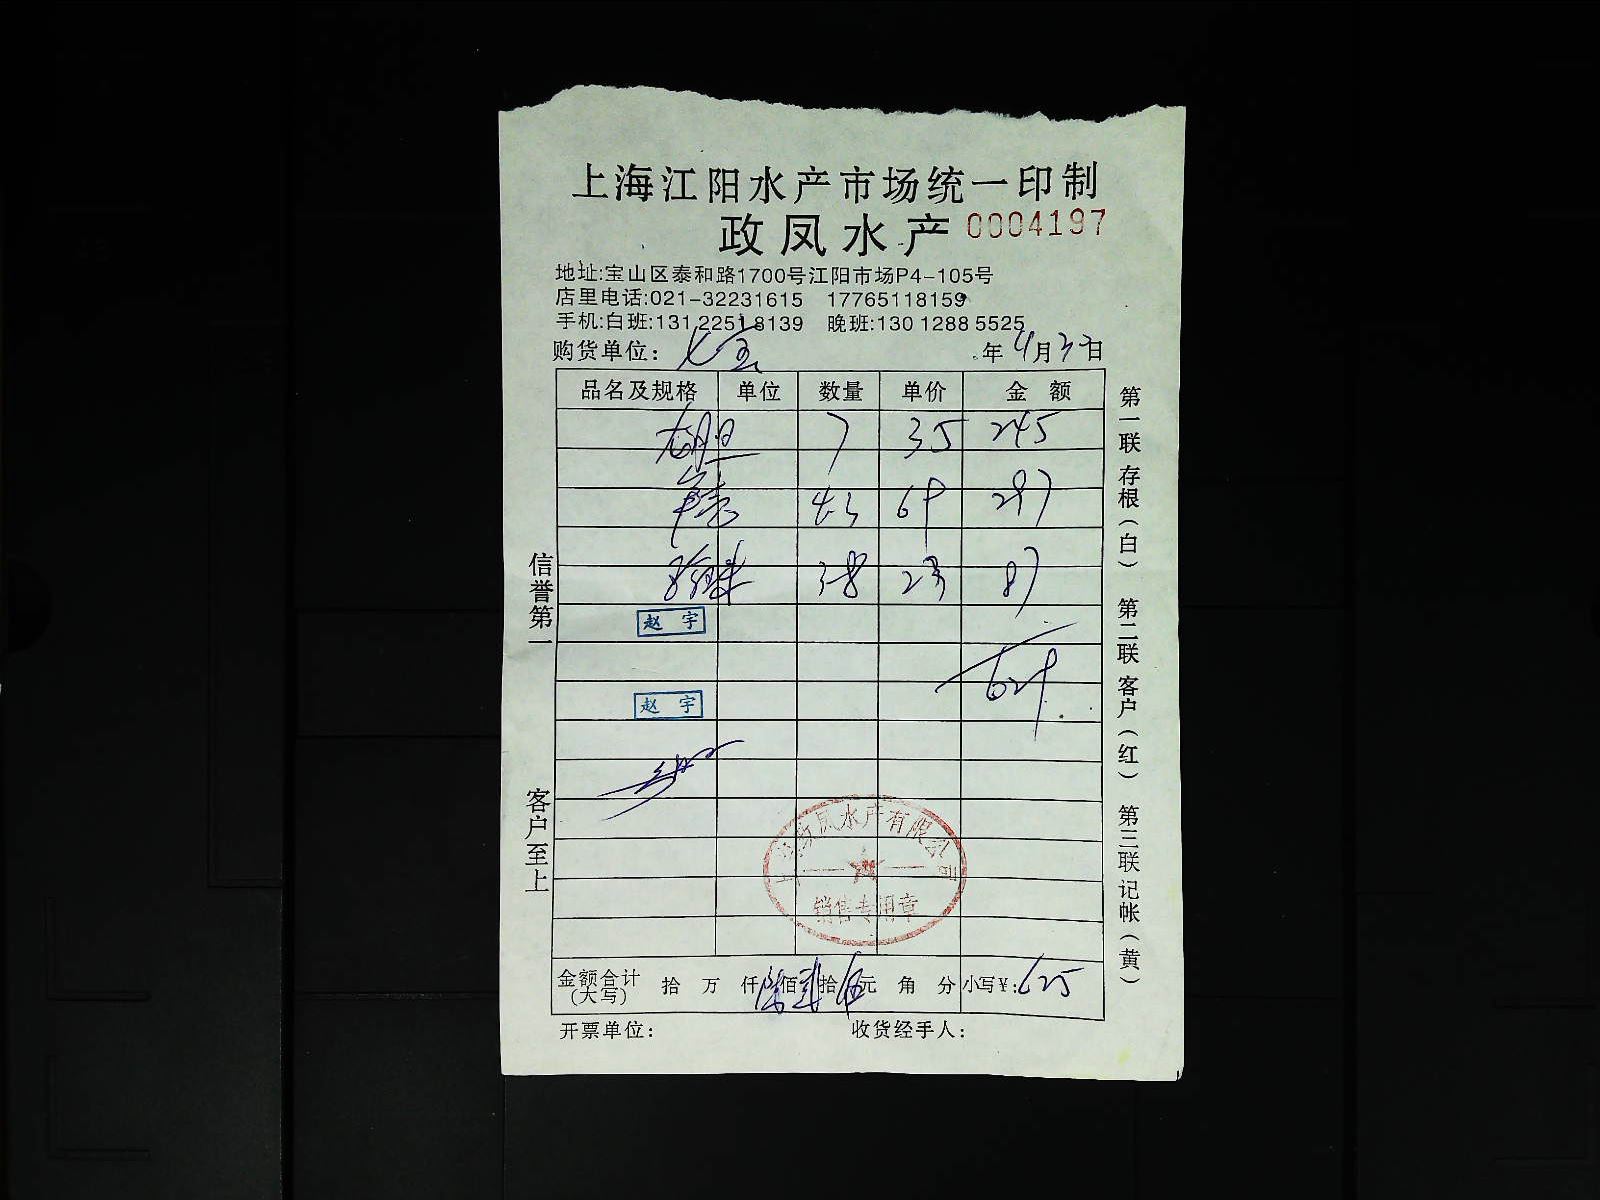 上海江阳水产市场统一印制
政凤水产 0004197
地址:宝山区泰和路1700号江阳市场P4-105号
店里电话:021-32231615 17765118159
手机:白班:131 2251 8139 晚班:130 1288 5525
购货单位: 七宝 年 4月 日
品名及规格 单位 数量 单价 金额
龙胆 7 35 245
43 69 297
38 23 87
赵宇
赵宇
上海政凤水产有限公司
销售专用章
金额合计(大写) 拾 万 仟 陆佰贰拾伍元 角 分 小写¥: 625
开票单位: 收货经手人:
信誉第一
客户至上
第一联存根(白) 第二联客户(红) 第三联记帐(黄)